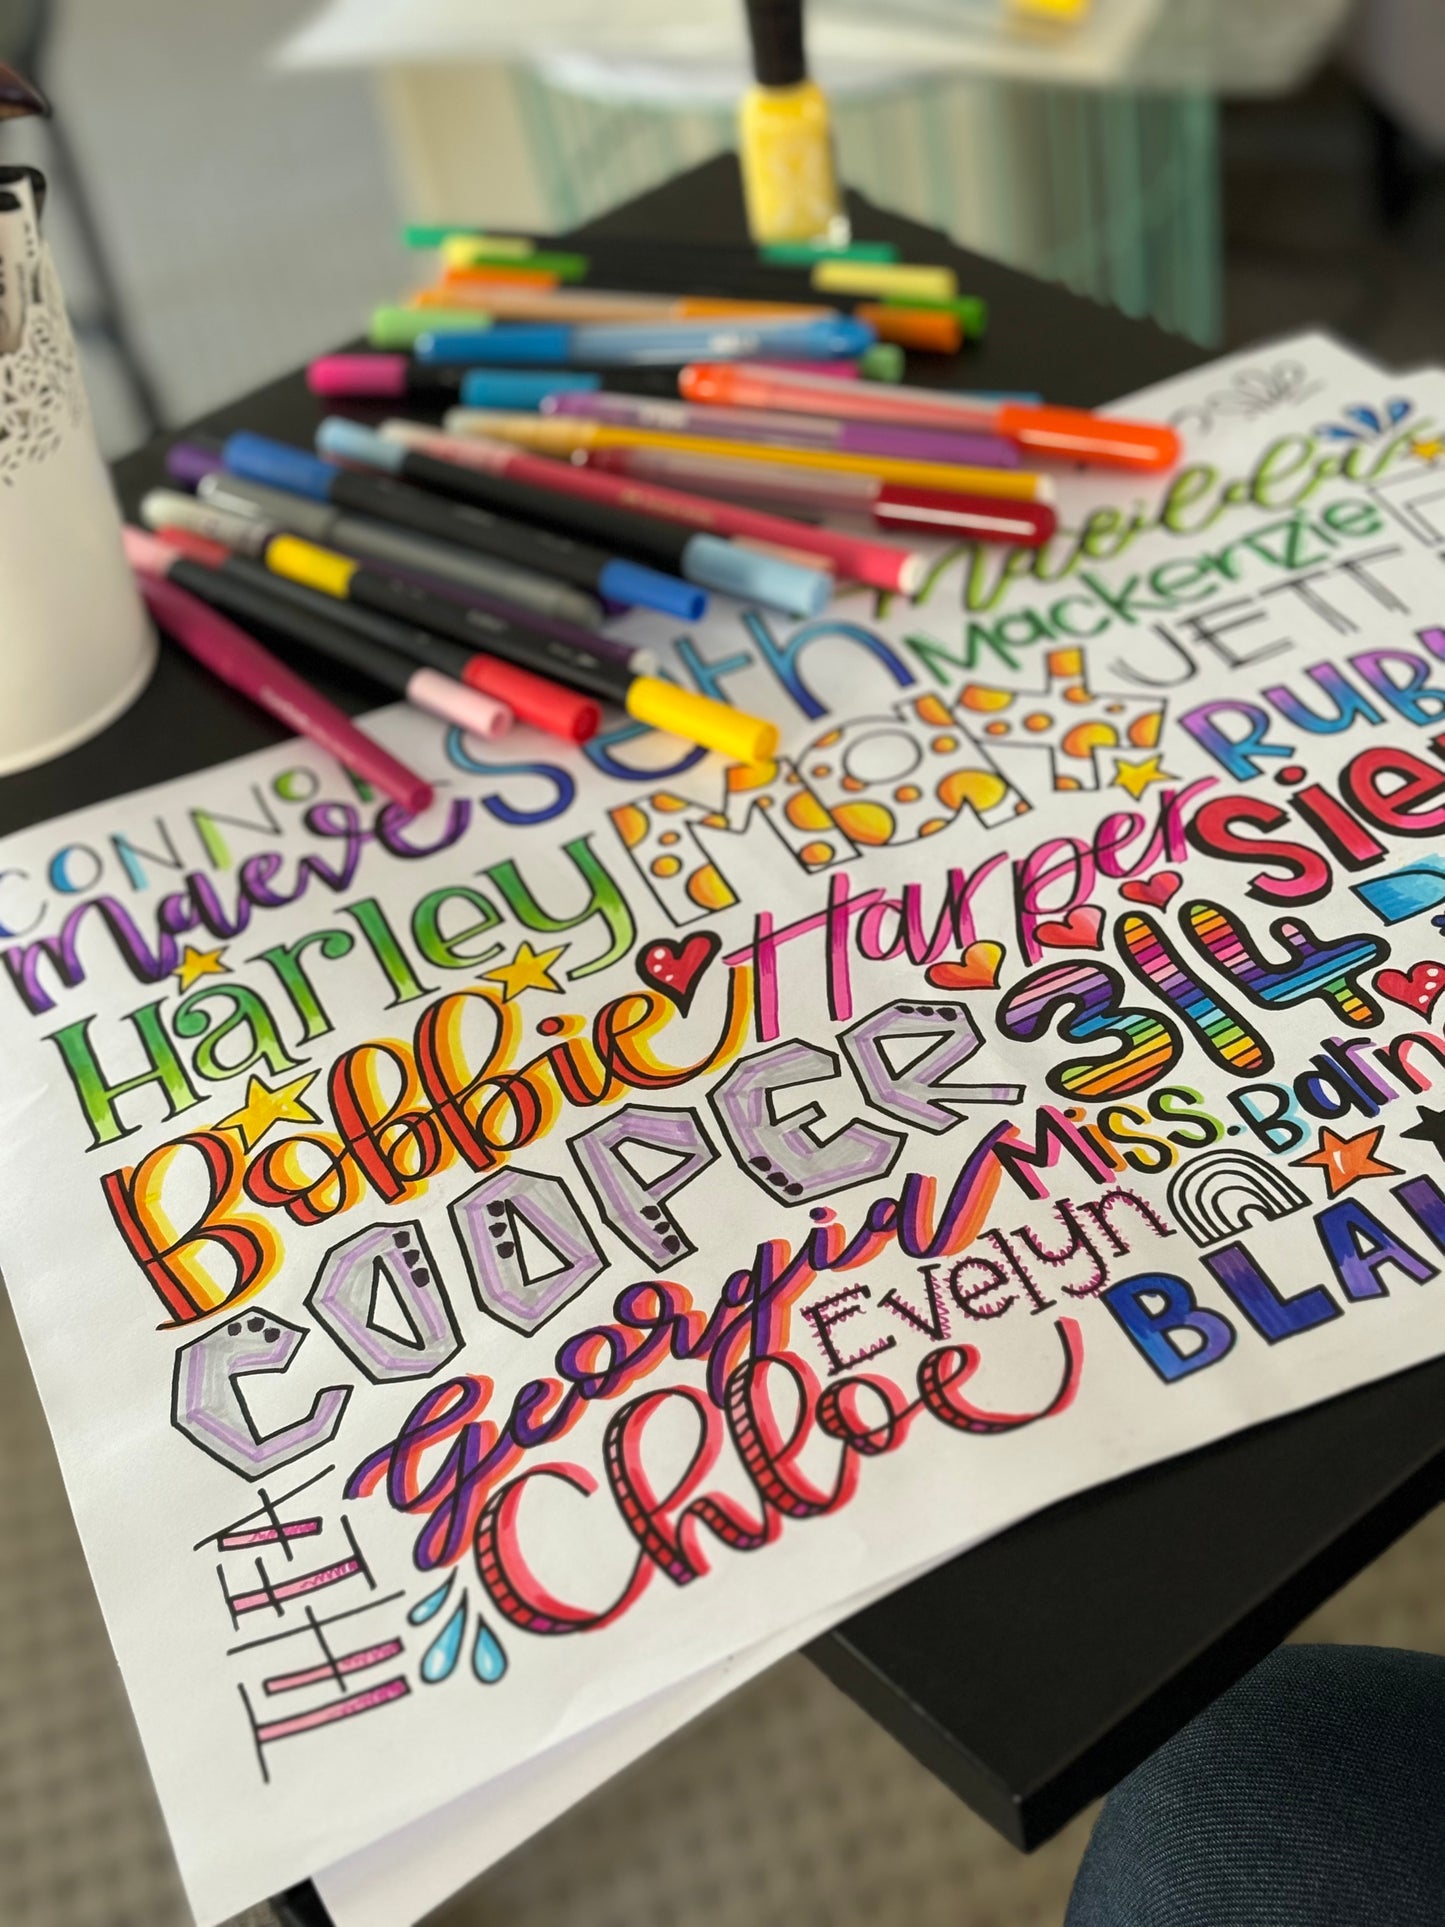 Mackenzie
JETT
CONNOR
Maeve
Seth
Max
RUB
Sie
Harley
Harper
314
Bobbie
COOPER
Miss. Barn
Georgia
Evelyn
BLA
Chloe
THEA